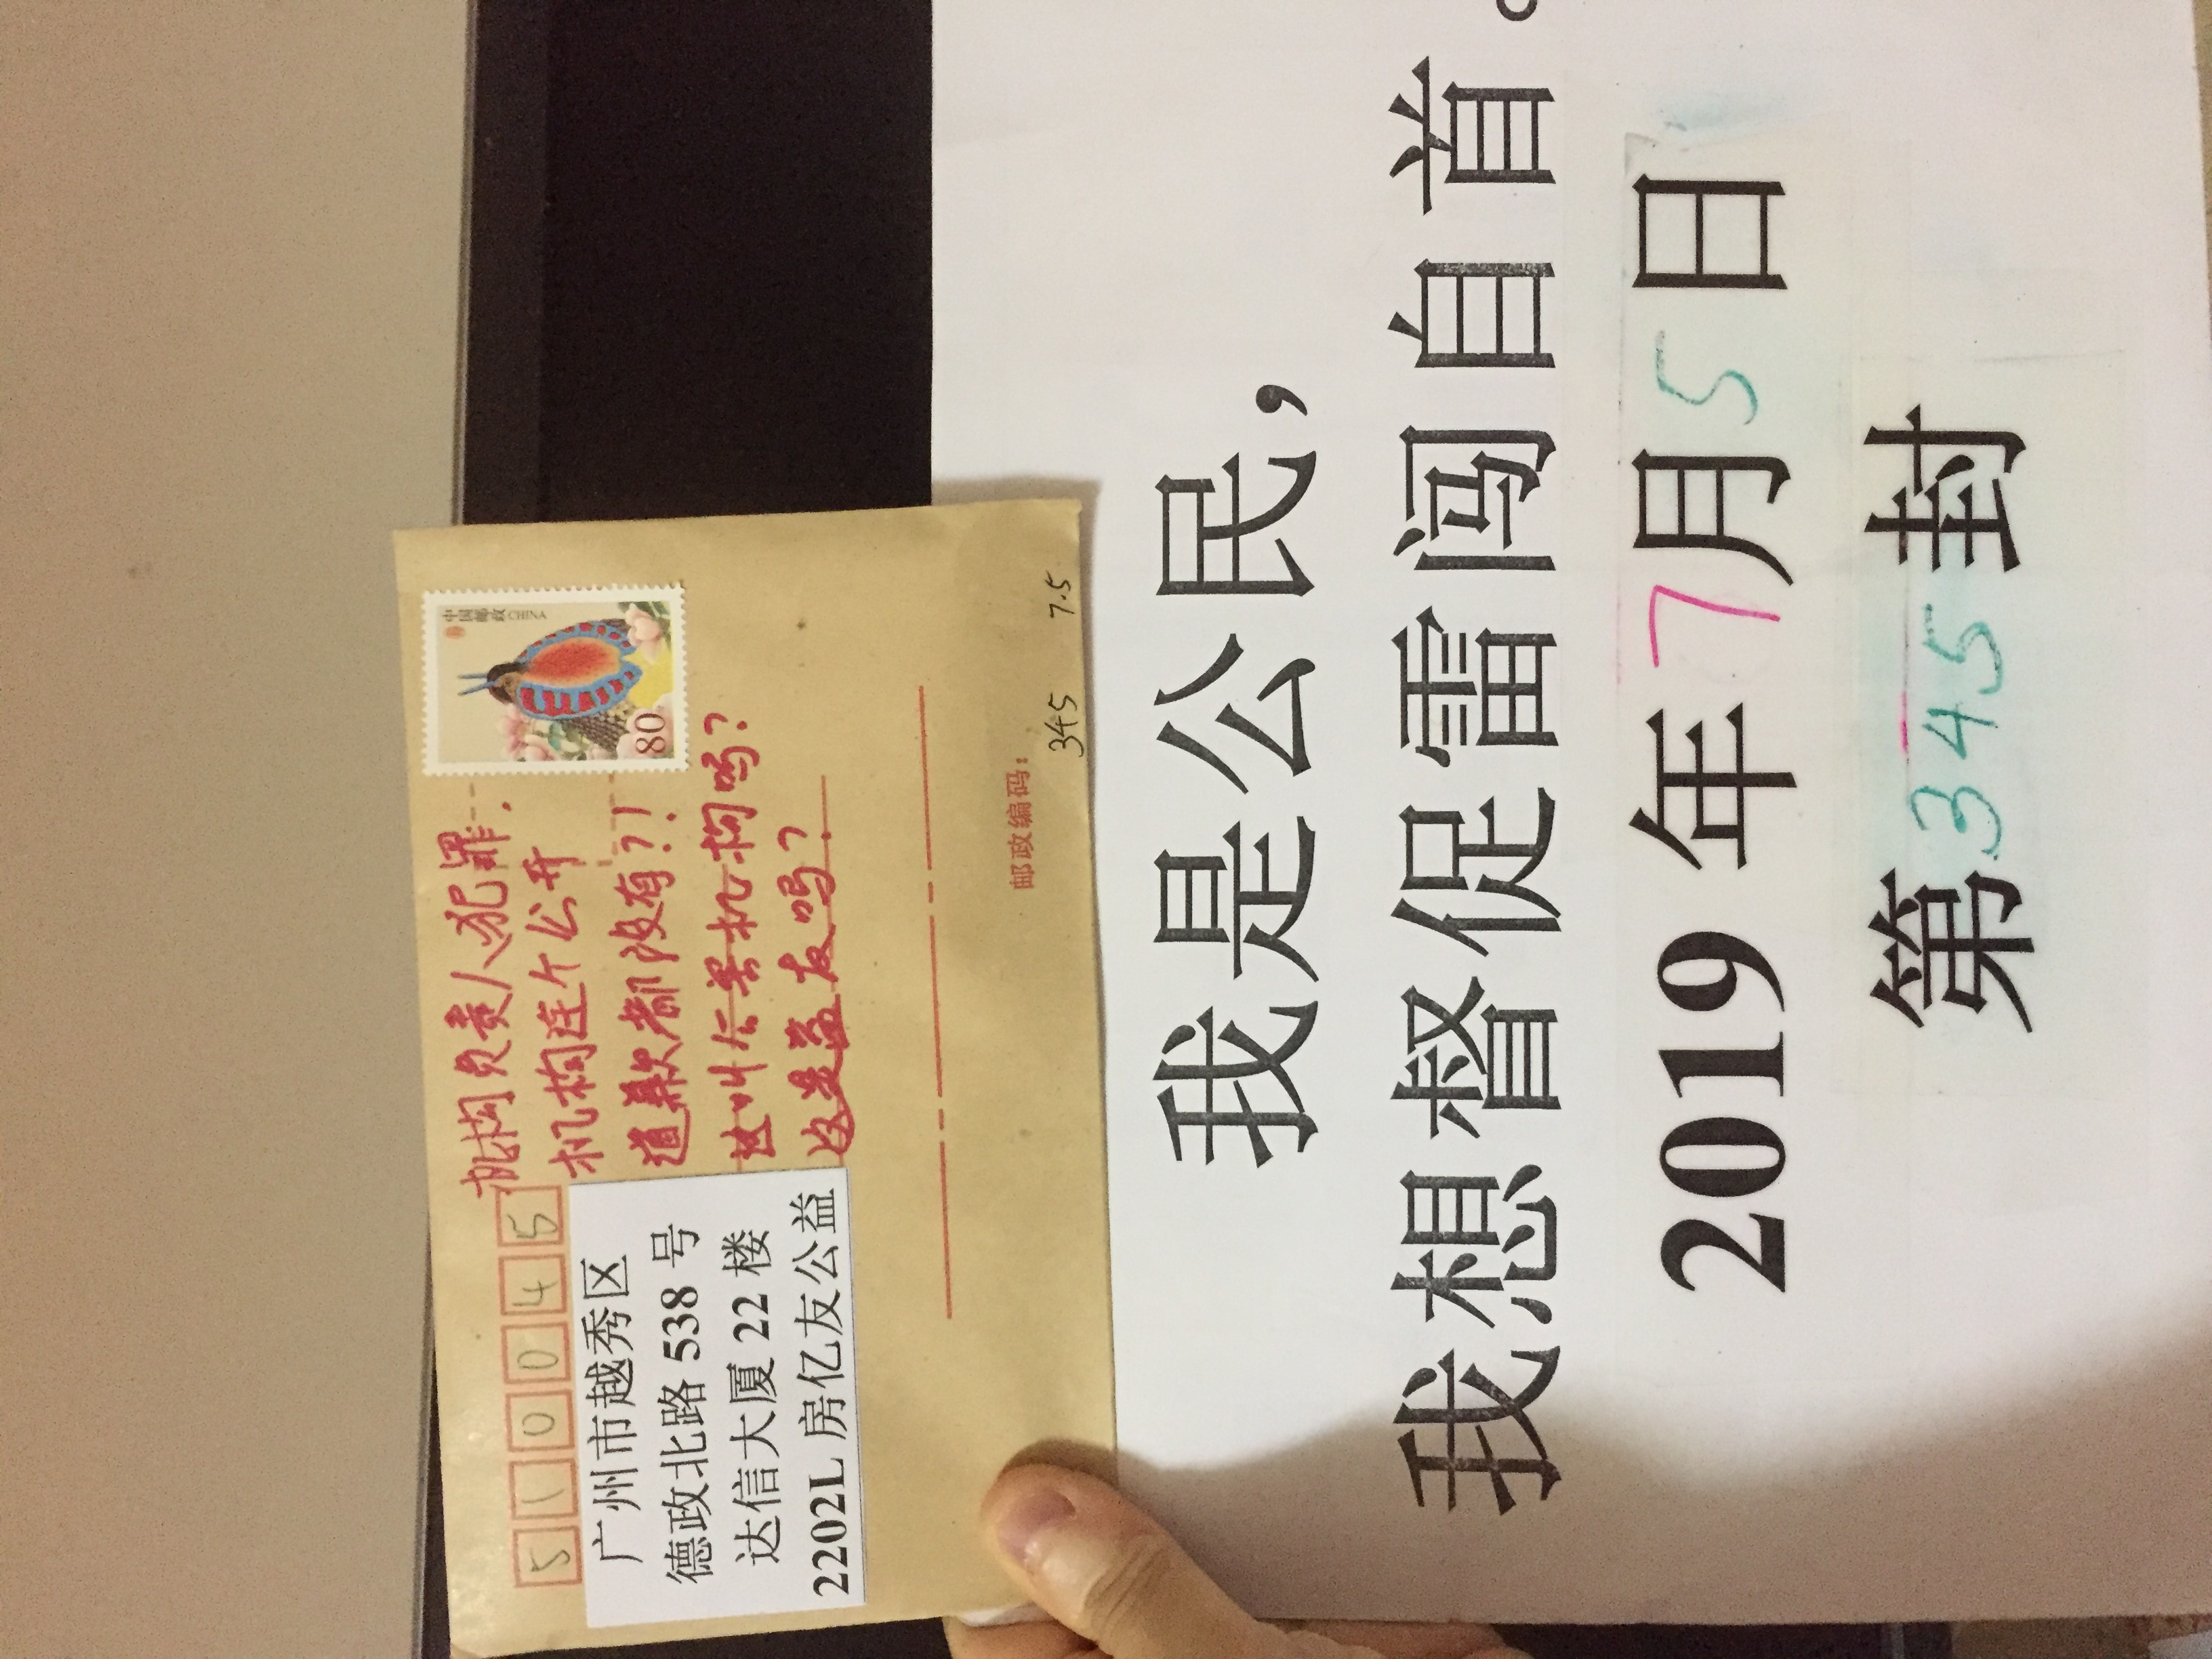 510045
广州市越秀区
德政北路 538 号
达信大厦 22 楼
2202L 房亿友公益
机构负责人犯罪.
机构连个公开
道歉都没有?!
这叫公益机构吗?
这是益友吗?
中国邮政 CHINA
80
邮政编码:
345 7.5
我是公民，
我想督促雷闯自首。
2019 年 7月 5 日
第 345 封